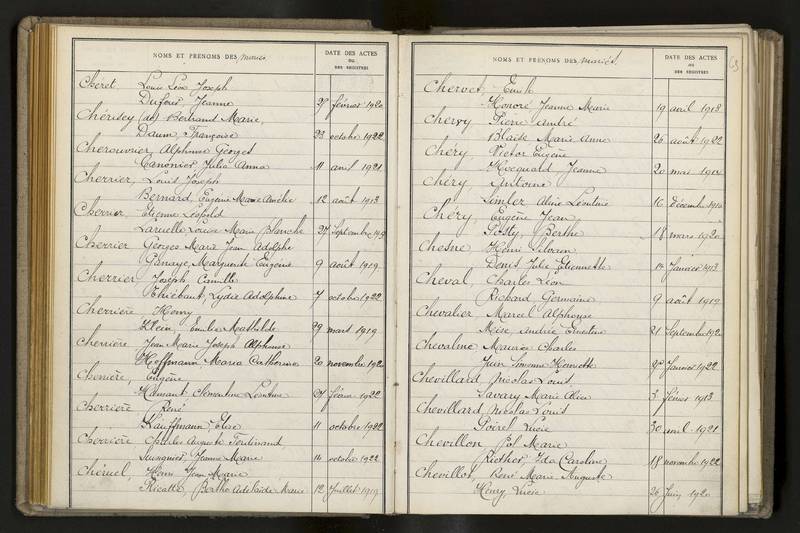 NOMS ET PRÉNOMS DES mariés
DATE DES ACTES
OU
DES REGISTRES
Chéret Louis Léon Joseph
Dufour, Jeanne 27 février 1920
Chérisey (de) Bertrand Marie,
Daum, Françoise 23 octobre 1922
Cherouvrier, Alphonse Georges
Canonier, Julie Anna 11 avril 1921
Cherrier, Louis Joseph
Bernard, Eugénie Marie Amélie 12 août 1913
Cherrier, Etienne Léopold
Laruelle Louise Marie Blanche 27 Septembre 191
Cherrier Georges Marie Jean Adolphe
Marguerite Eugénie 9 août 1919
Cherrier Joseph Camille
Thiébaut, Lydia Adolphine 7 octobre 1922
Cherrière, Henry
Klein, Emilie Mathilde 29 mars 1919
Cherrière Jean Marie Joseph Alphonse
Hoffmann Maria Catherine 20 novembre 1920
Cherrière, Eugène
Mamant, Clémentine 21 février 1922
Cherrière René
Kauffmann Elise 11 octobre 1922
Cherrière Charles Auguste Ferdinand
Jeanne Marie 14 octobre 1922
Chéruel, Henri Jean Marie
Ricatte, Berthe Adélaïde Marie 12 Juillet 1919
NOMS ET PRÉNOMS DES mariés
DATE DES ACTES
OU
DES REGISTRES
63
Chervet, Emile
Honoré Jeanne Marie 19 avril 1918
Chervy Pierre André
Blaise Marie Anne 26 août 1922
Chéry, Victor Eugène
Hocquard, Jeanne 20 mai
Chéry, Antoine
Simler Aline Léontine 16 Décembre 1910
Chéry, Eugène Jean
Posty, Berthe 18 mars 1920
Chesne Henri Silvain
Denis Julie Etiennette 14 Janvier 1913
Cheval, Charles Léon
Richard Germaine 9 août 1919
Chevalier Marcel Alphonse
Andrée Ernestine 21 Septembre 1920
Chevaline Maurice Charles
Juin Simonne Henriette Janvier 1922
Chevillard, Nicolas Louis
Savary Marie Alice 5 février 1913
Chevillard Nicolas Louis
Poirel Lucie 30 avril 1921
Chevillon Pol Marie
Riether, Ida Caroline 18 novembre 1922
Chevillot, René Marie Auguste
Henry, Lucie 26 Juin 1920